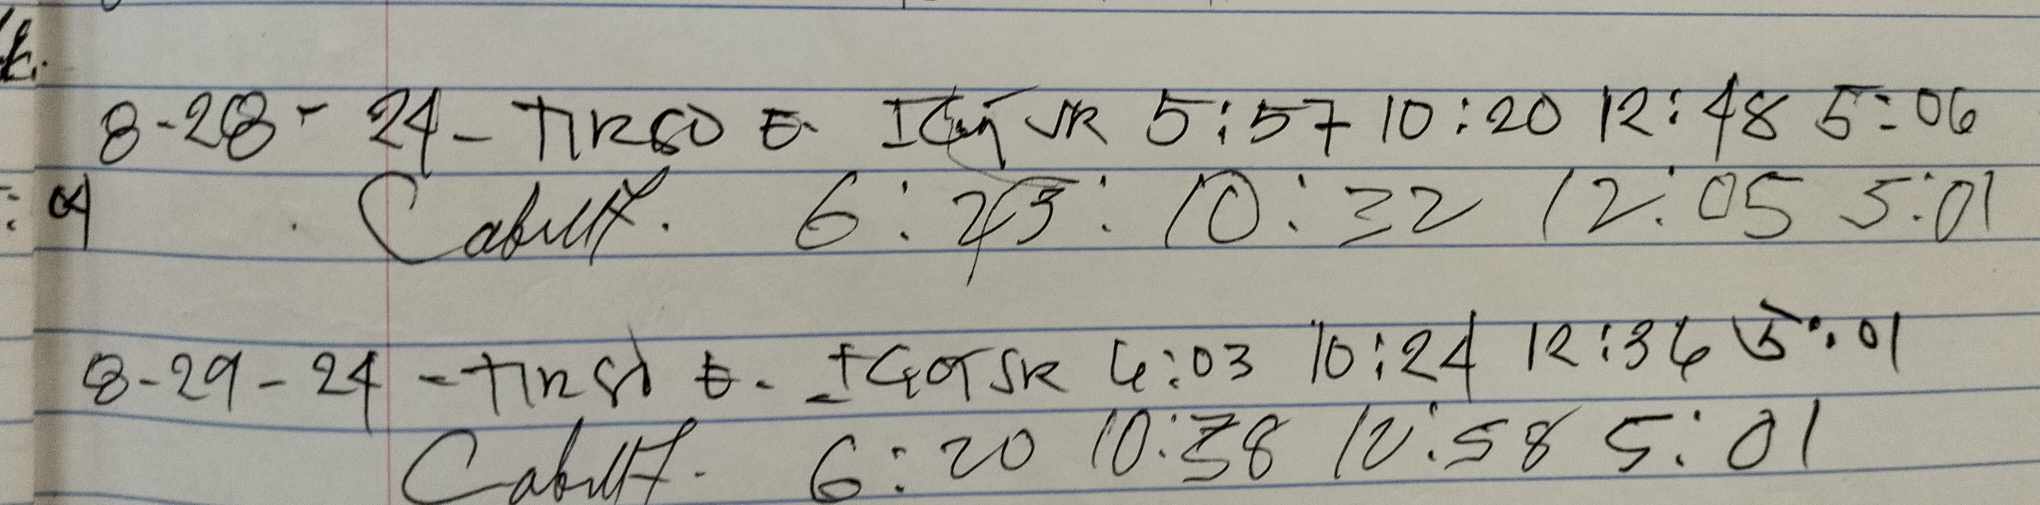 8-28-24 - TIRSO E. IGOT JR 5:57 10:20 12:48 5:06
6:23: 10:32 12:05 5:01
8-29-24 - TIRSO E. IGOT SR 6:03 10:24 12:36 5:01
6:20 10:38 12:58 5:01